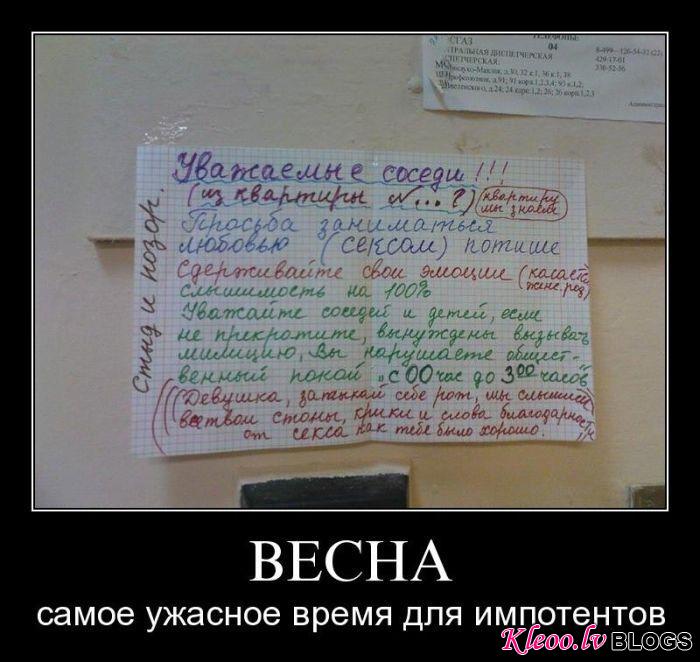 ТЕЛЕФОНЫ:
СГАЗ
04
ТРАЛЬНАЯ ДИСПЕТЧЕРСКАЯ
8-499-126-54-32 (22)
ПЕТЧЕРСКАЯ:
429-17-01
330-52-56
Уважаемые соседи !!!
(из квартиры №...?) (квартиру мы знаем)
Просьба заниматься
любовью (сексом) потише
Сдерживайте свои эмоции (касается женс. род)
слышимость на 100%
Уважайте соседей и детей, если
не прекратите, вынуждены вызывать
милицию, Вы нарушаете общест-
венный покой "с 00 час до 3 00 часов
((Девушка, затыкай себе рот, мы слышим
все твои стоны, крики и слова благодарности
от секса как тебе было хорошо.
Стыд и позор.
ВЕСНА
самое ужасное время для импотентов
Kleoo.lv BLOGS